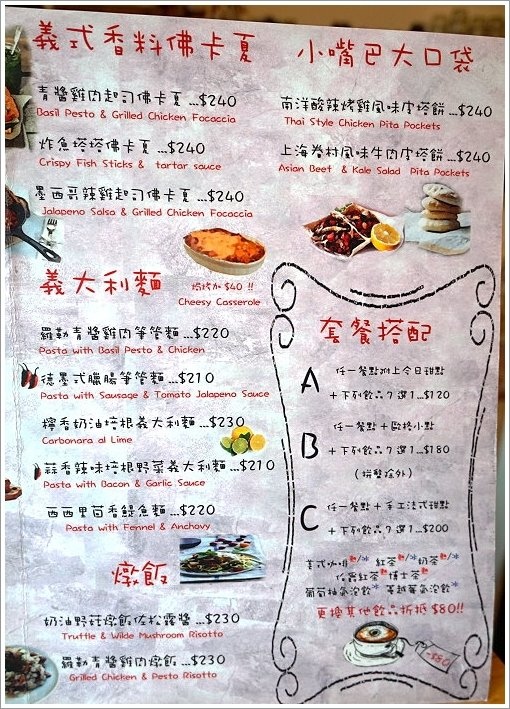 義式香料佛卡夏
青醬雞肉起司佛卡夏...$240
Basil Pesto & Grilled Chicken Focaccia
炸魚塔塔佛卡夏...$240
Crispy Fish Sticks & tartar sauce
墨西哥辣雞起司佛卡夏...$240
Jalapeno Salsa & Grilled Chicken Focaccia
義大利麵
焗烤加 $40 !!
Cheesy Casserole
羅勒青醬雞肉筆管麵...$220
Pasta with Basil Pesto & Chicken
德墨式臘腸筆管麵...$210
Pasta with Sausage & Tomato Jalapeno Sauce
檸香奶油培根義大利麵...$230
Carbonara al Lime
蒜香辣味培根野菜義大利麵...$210
Pasta with Bacon & Garlic Sauce
西西里茴香鯷魚麵...$220
Pasta with Fennel & Anchovy
燉飯
奶油野菇燉飯佐松露醬...$230
Truffle & Wilde Mushroom Risotto
羅勒青醬雞肉燉飯...$230
Grilled Chicken & Pesto Risotto
小嘴巴大口袋
南洋酸辣烤雞風味皮塔餅...$240
Thai Style Chicken Pita Pockets
上海眷村風味牛肉皮塔餅...$240
Asian Beef & Kale Salad Pita Pockets
套餐搭配
A
任一餐點附上今日甜點
+下列飲品7選1...$120
B
任一餐點+歐格小點
+下列飲品7選1...$180
(拼盤除外)
C
任一餐點+手工法式甜點
+下列飲品7選1...$200
美式咖啡熱/冰 紅茶熱/冰 奶茶熱/冰
伯爵紅茶熱 博士茶熱
葡萄柚氣泡飲冰 蔓越莓氣泡飲冰
更換其他飲品折抵 $80!!
-$80